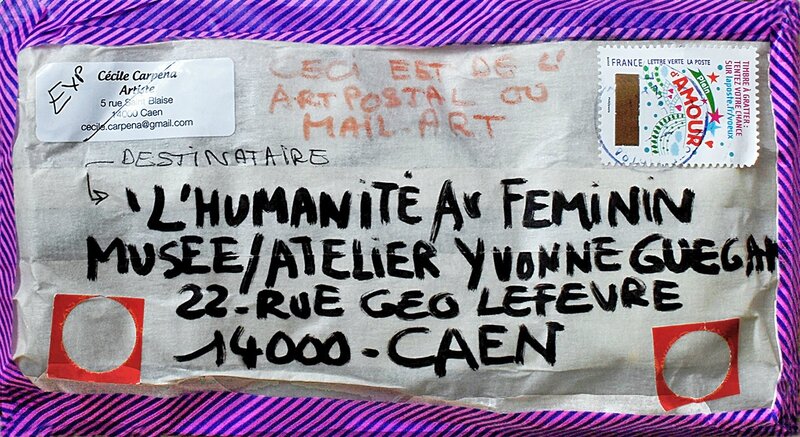 EXP
Cécile Carpena
Artiste
5 rue Saint Blaise
14000 Caen
cecile.carpena@gmail.com
CECI EST DE L'
ART POSTAL OU
MAIL-ART
FRANCE LETTRE VERTE LA POSTE
PLEIN
D'AMOUR
TIMBRE À GRATTER :
TENTEZ VOTRE CHANCE
SUR laposte.fr/voeux
DESTINATAIRE
'L'HUMANITÉ AU FEMININ
MUSEE/ATELIER YVONNE GUEGAN
22-RUE GEO LEFEVRE
14000-CAEN